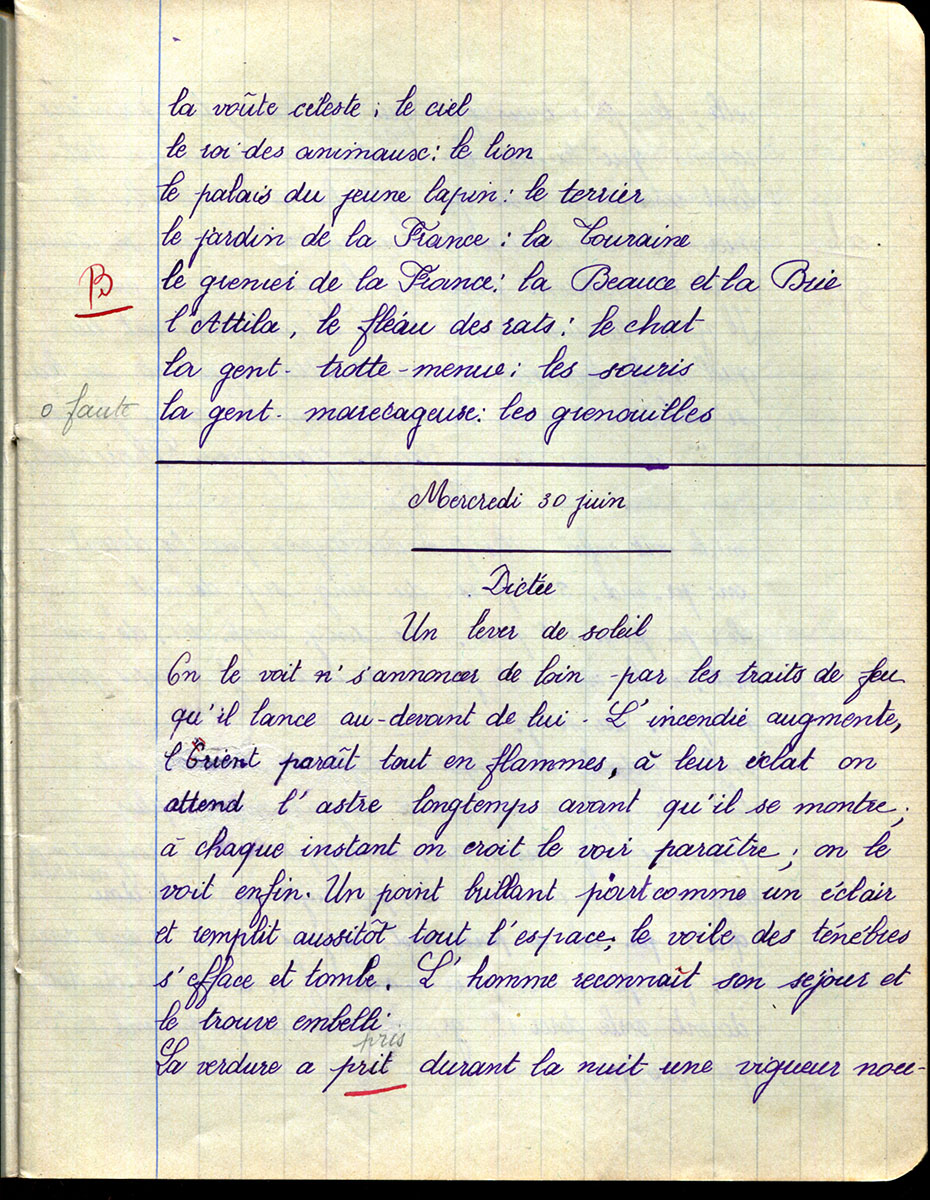 la voûte céleste ; le ciel
le roi des animaux : le lion
le palais du jeune lapin : le terrier
le jardin de la France : la Touraine
B
le grenier de la France : la Beauce et la Brie
l'Attila, le fléau des rats : le chat
la gent-trotte-menue ; les souris
0 faute
la gent-marécageuse : les grenouilles
Mercredi 30 juin
Dictée
Un lever de soleil
On le voit n's'annoncer de loin par les traits de feu
qu'il lance au-devant de lui. L'incendie augmente,
l'Orient paraît tout en flammes, à leur éclat on
attend l'astre longtemps avant qu'il se montre ;
à chaque instant on croit le voir paraître ; on le
voit enfin. Un point brillant part comme un éclair
et remplit aussitôt tout l'espace ; le voile des ténèbres
s'efface et tombe. L'homme reconnaît son séjour et
le trouve embelli
pris
La verdure a prit durant la nuit une vigueur nou-